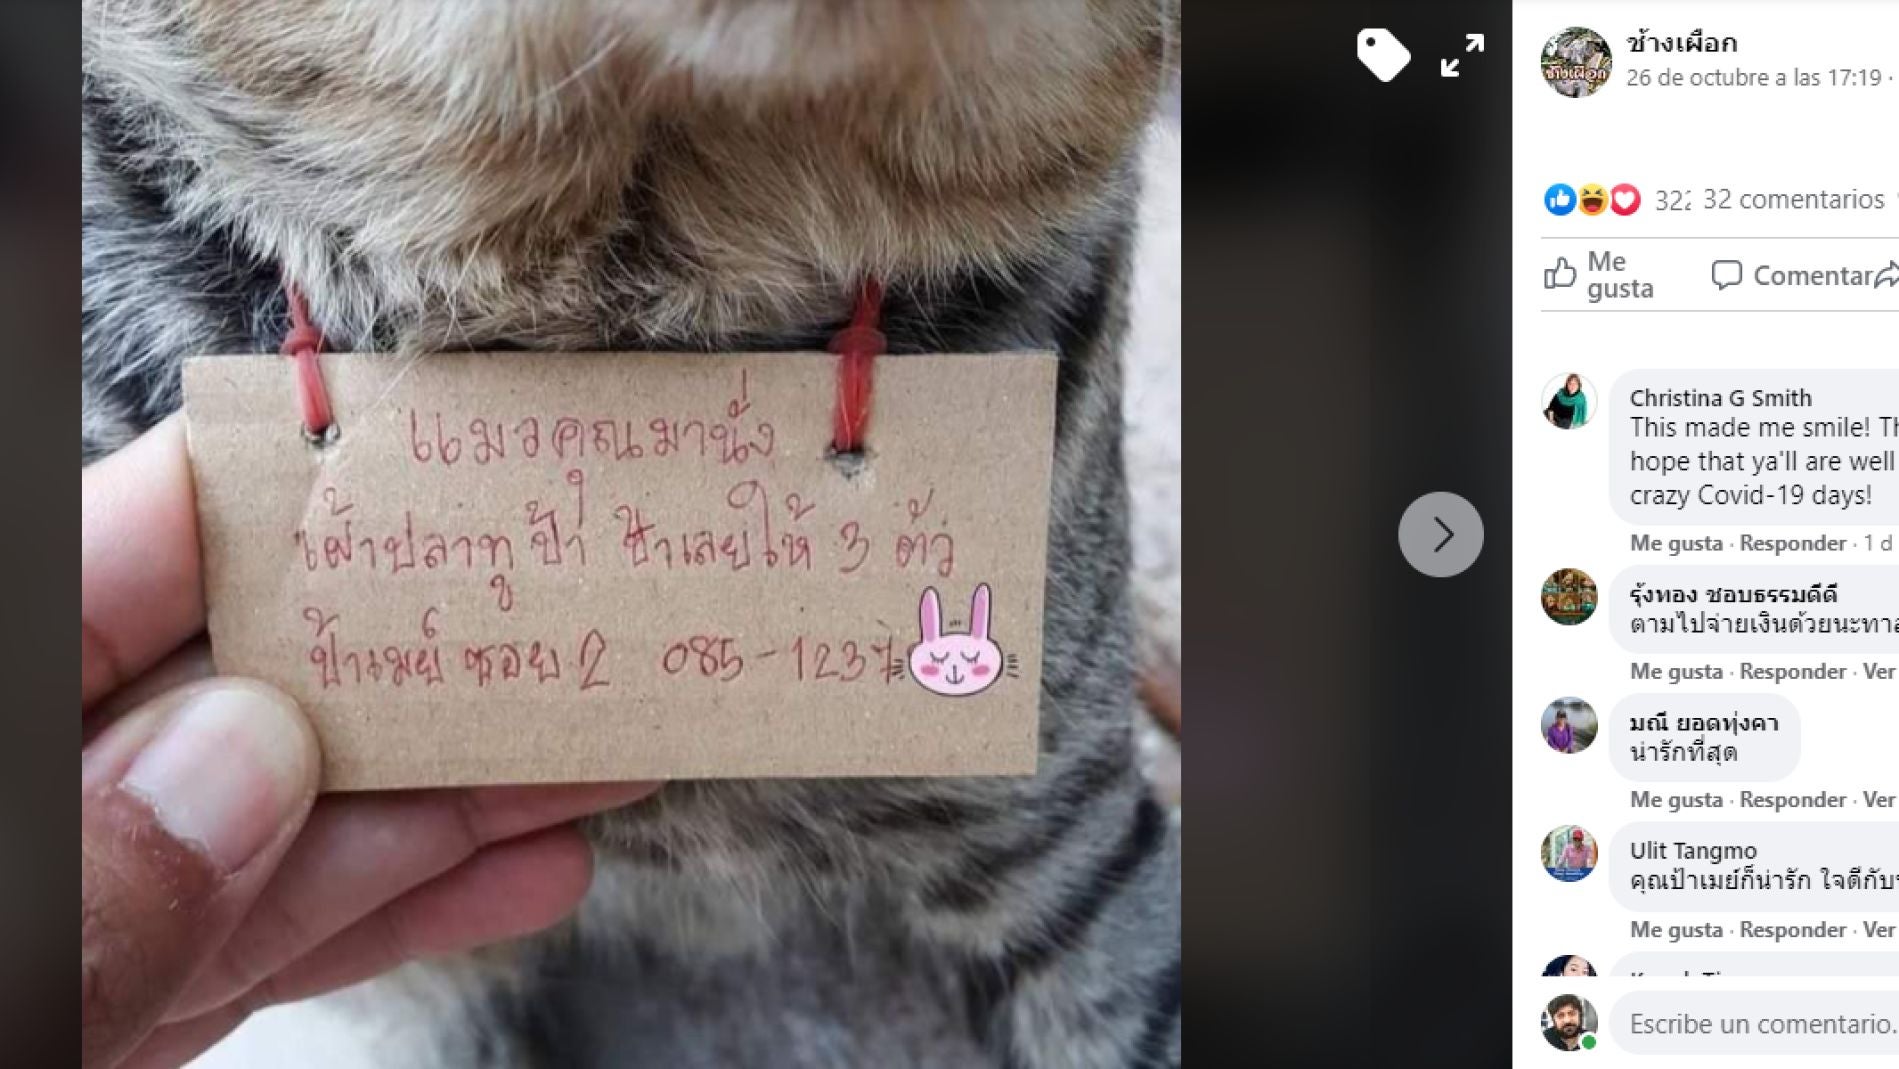 แมวคุณมานั่ง
เฝ้าปลาทูป้า ป้าเลยให้ 3 ตัว
ป้าเมย์ ซอย 2 085-1237
ช้างเผือก
ช้างเผือก
26 de octubre a las 17:19 ·
322 32 comentarios
Me gusta
Comentar
Christina G Smith
This made me smile!
hope that ya'll are well
crazy Covid-19 days!
Me gusta · Responder · 1 d
รุ้งทอง ชอบธรรมดีดี
ตามไปจ่ายเงินด้วยนะ
Me gusta · Responder · Ver
มณี ยอดทุ่งคา
น่ารักที่สุด
Me gusta · Responder · Ver
Ulit Tangmo
คุณป้าเมย์ก็น่ารัก ใจดีกับ
Me gusta · Responder · Ver
Escribe un comentario.